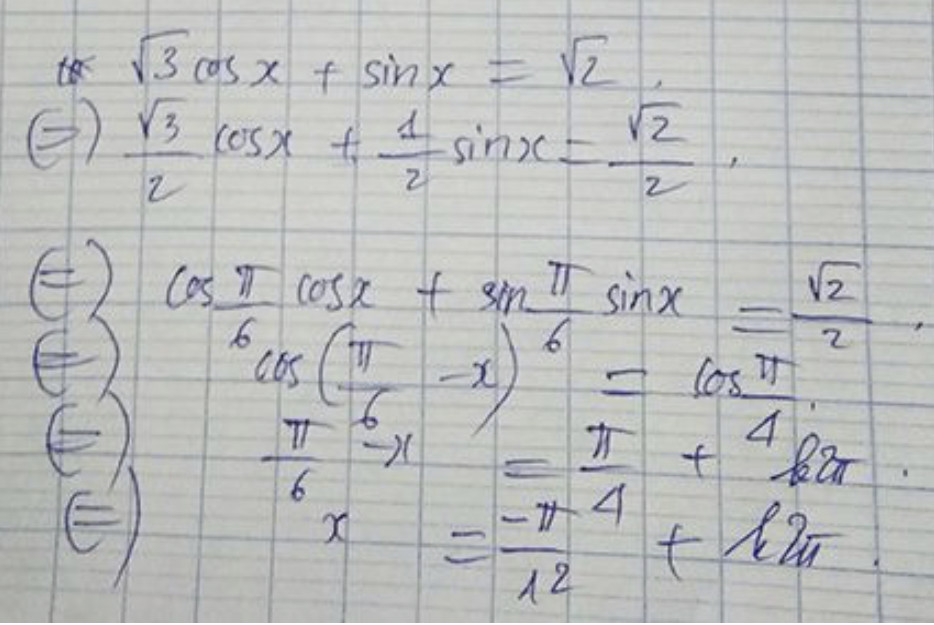 √3 cos x + sin x = √2.
(=) √3/2 cos x + 1/2 sin x = √2/2.
(=) cos π/6 cos x + sin π/6 sin x = √2/2.
(=) cos(π/6 - x) = cos π/4.
(=) π/6 - x = π/4 + k2π.
(=) x = -π/12 + k2π.